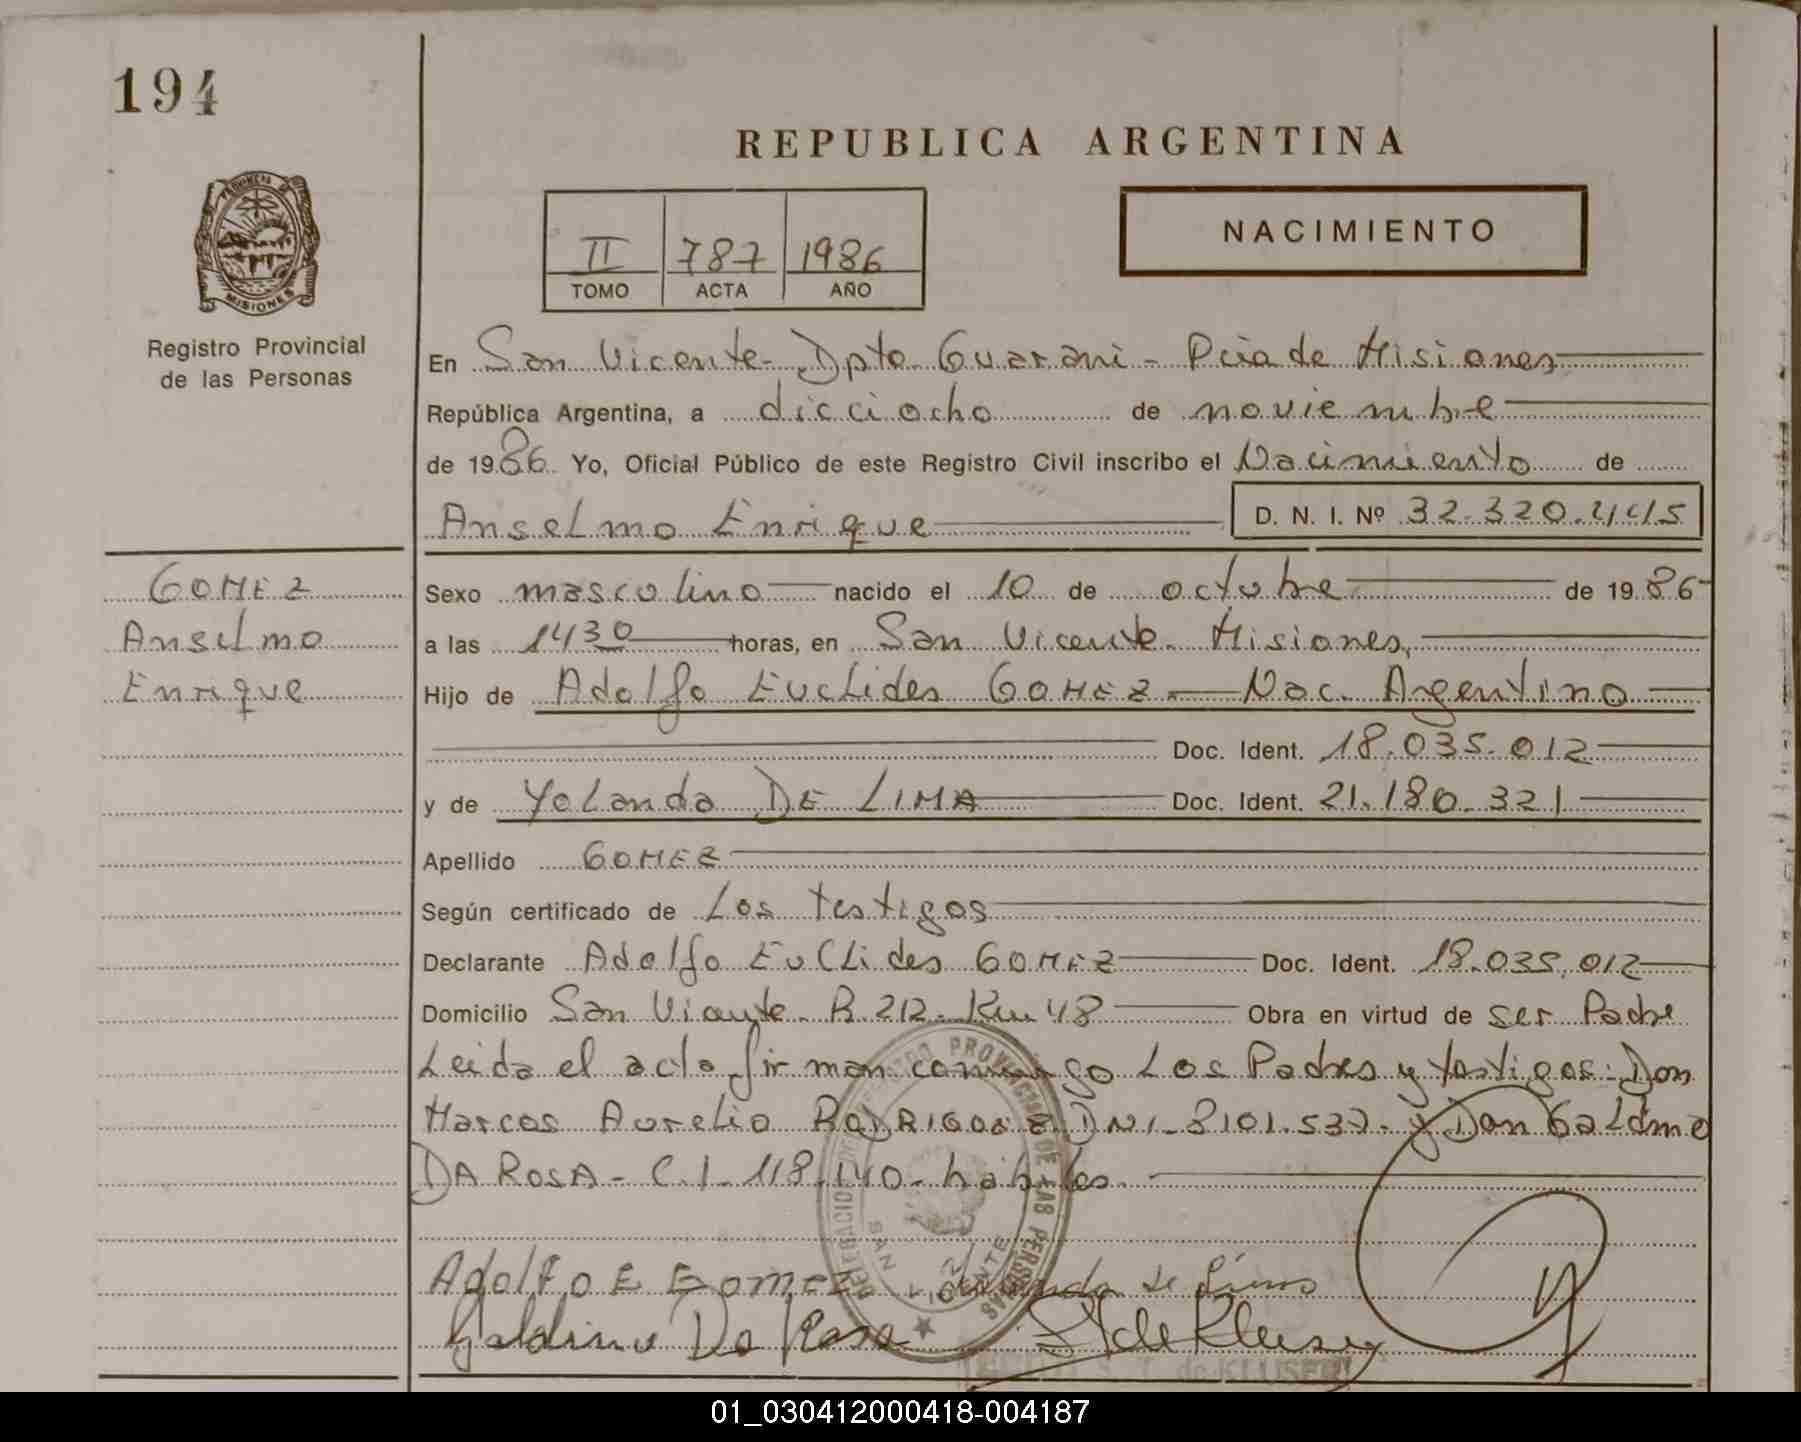 194
REPUBLICA ARGENTINA
PROVINCIA DE
MISIONES
Registro Provincial
de las Personas
NACIMIENTO
II 787 1986
TOMO ACTA AÑO
En San Vicente - Dpto Guarani - Pcia de Misiones
República Argentina, a dieciocho de noviembre
de 1986 Yo, Oficial Público de este Registro Civil inscribo el Nacimiento de
Anselmo Enrique D. N. I. Nº 32.320.445
GOMEZ
Anselmo
Enrique
Sexo masculino nacido el 10 de octubre de 1986
a las 1430 horas, en San Vicente - Misiones,
Hijo de Adolfo Euclides GOMEZ - Nac. Argentino
Doc. Ident. 18.035.012
y de Yolanda DE LIMA Doc. Ident. 21.180.321
Apellido GOMEZ
Según certificado de Los testigos
Declarante Adolfo Euclides GOMEZ Doc. Ident. 18.035.012
Domicilio San Vicente - R 212 - Km 48 Obra en virtud de ser Padre
Leida el acta firman conmigo Los Padres y testigos: Don
Marcos Aurelio RODRIGUEZ DNI - 8101.537 - y Don Galdino
DA ROSA - C.I. 118.140 - habiles.
REGISTRO PROVINCIAL DE LAS PERSONAS
DELEGACION
SAN VICENTE
Adolfo E Gomez Yolanda de Lima
Galdino Da Rosa S T de Kluser
S. T. de KLUSER
01_030412000418-004187